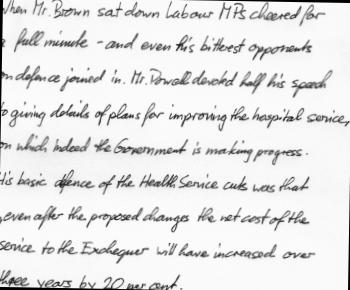 When Mr. Brown sat down Labour MPs cheered for
a full minute - and even his bitterest opponents
on defence joined in. Mr. Powell devoted half his speech
to giving details of plans for improving the hospital service,
on which indeed the Government is making progress.
His basic defence of the Health Service cuts was that
, even after the proposed changes the net cost of the
service to the Exchequer will have increased over
three years by 20 per cent.